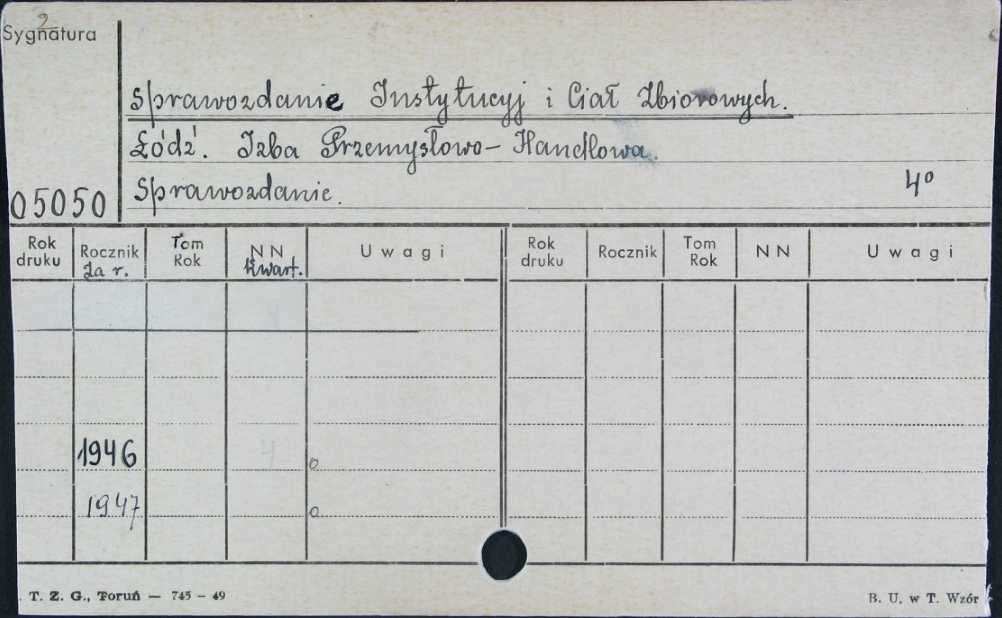 2
Sygnatura
Sprawozdanie Instytucyj i Ciał Zbiorowych.
Łódź. Izba Przemysłowo-Handlowa.
Sprawozdanie. 4º
05050
Rok druku Rocznik Tom Rok NN Uwagi Rok druku Rocznik Tom Rok NN Uwagi
Za r. Kwart.
1946 4 o
1947 o
T. Z. G., Toruń — 745 - 49 B. U. w T. Wzór